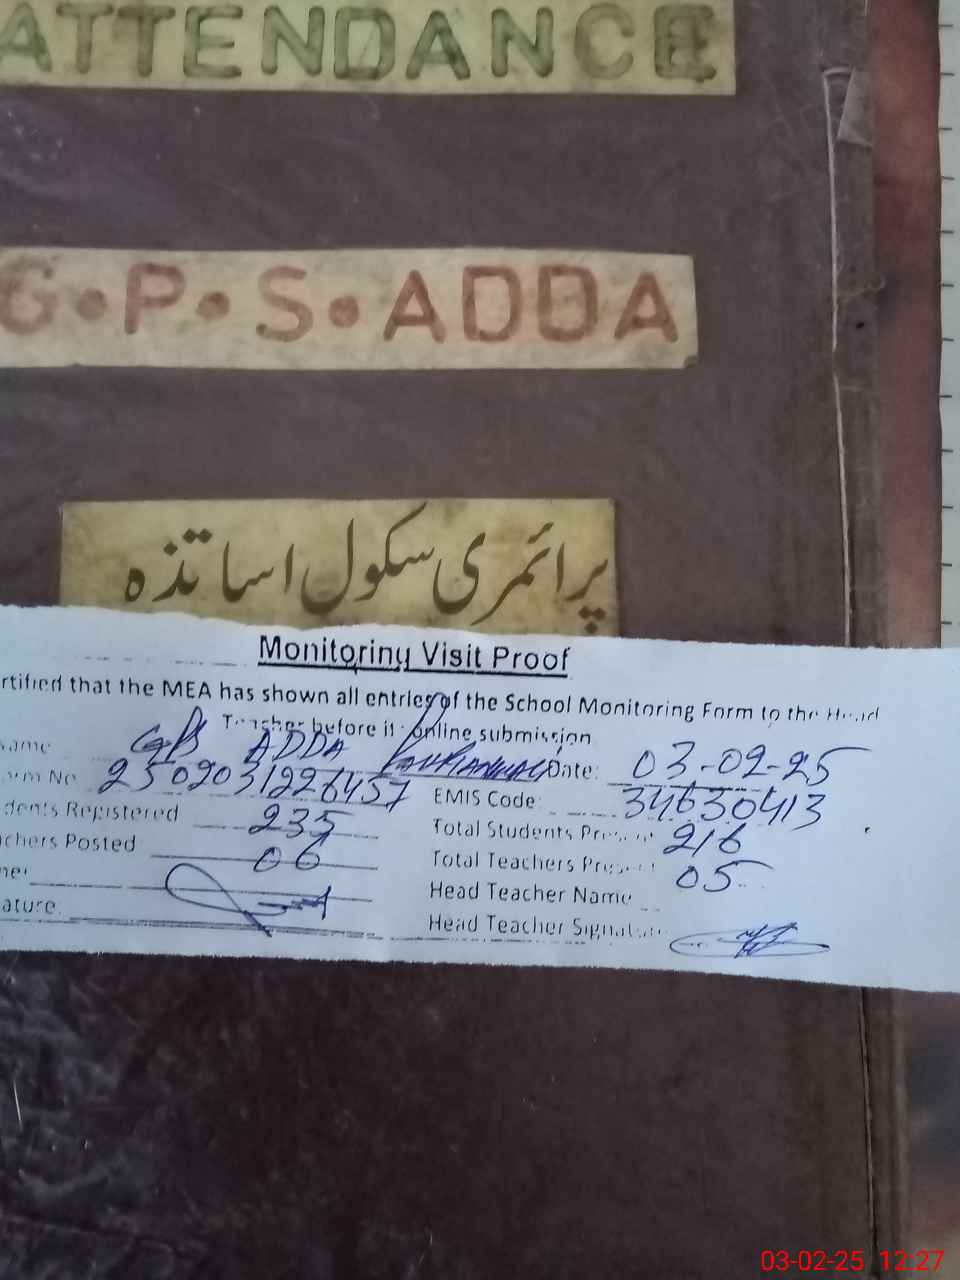 ATTENDANCE
G.P.S.ADDA
پرائمری سکول اساتذہ
Monitoring Visit Proof
rtified that the MEA has shown all entries of the School Monitoring Form to the Head
Teacher before it online submission
ame GPS ADDA Date: 03-02-25
rm No 2502031226457 EMIS Code: 34630413
dents Registered 235 Total Students Pre 216
chers Posted 06 Total Teachers Pre 05
me: Head Teacher Name
ature: Head Teacher Signature
03-02-25 12:27